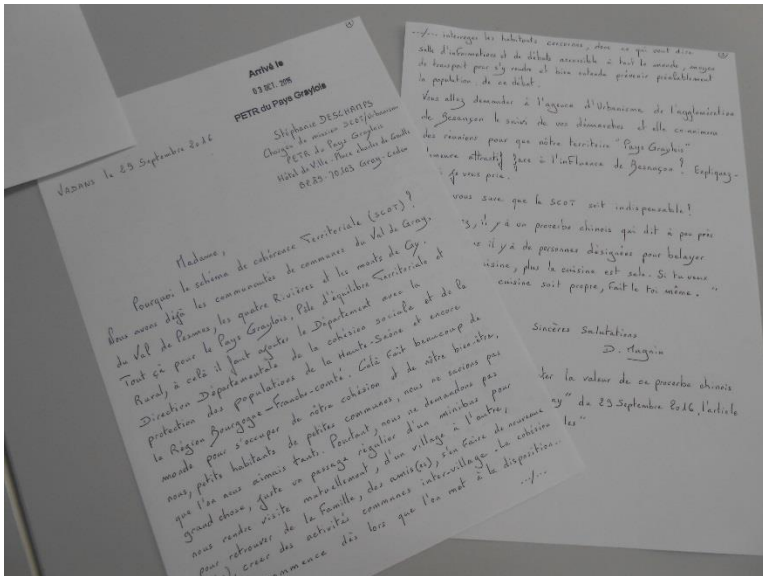 Arrivé le
03 OCT. 2016
PETR du Pays Graylois
Stéphanie DESCHAMPS
Chargée de mission SCOT/Urbanisme
PETR du Pays Graylois
Hôtel de Ville - Place Charles de Gaulle
70103 Gray Cedex
VADANS le 29 Septembre 2016
Madame,
Pourquoi le schéma de cohérence Territoriale (SCOT) ?
Nous avons déjà les communautés de communes du Val de Gray,
du Val de Pesmes, les quatre Rivières et les monts de Gy.
Tout çà pour le Pays Graylois, Pôle d'équilibre Territoriale et
Rural, à celà il faut ajouter le Département avec la
Direction Départementale de la cohésion sociale et de la
protection des populations de la Haute-Saône et encore
la Région Bourgogne-Franche-comté. Celà fait beaucoup de
monde pour s'occuper de nôtre cohésion et de nôtre bien être,
nous, petits habitants de petites communes, nous ne savions pas
que l'on nous aimais tants. Pourtant, nous ne demandons pas
grand chose, juste un passage régulier d'un minibus pour
nous rendre visite mutuellement, d'un village à l'autre,
pour retrouver de la famille, des amis(es), s'en faire de nouveaux
créer des activités communes inter-village. La cohésion
commence dès lors que l'on met à la disposition..
.../...
.../... interroger les habitants concernés, donc ce qui veut dire
salle d'informations et de débats accessible à tout le monde, moyen
de transport pour s'y rendre et bien entendu prévenir préalablement
la population de ce débat.
Vous allez demander à l'agence d'Urbanisme de l'agglomération
de Besançon le suivi de vos démarches et elle co-animera
des réunions pour que nôtre territoire "Pays Graylois"
demeure attractif face à l'influence de Besançon ? Expliquez-
je vous prie.
vous sure que le SCOT soit indispensable !
il y à un proverbe chinois qui dit à peu près
il y à de personnes désignées pour balayer
cuisine, plus la cuisine est sale. Si tu veux
cuisine soit propre, fait le toi même. "
Sincères Salutations
D. Magnin
la valeur de ce proverbe chinois
" du 29 Septembre 2016, l'article
les "